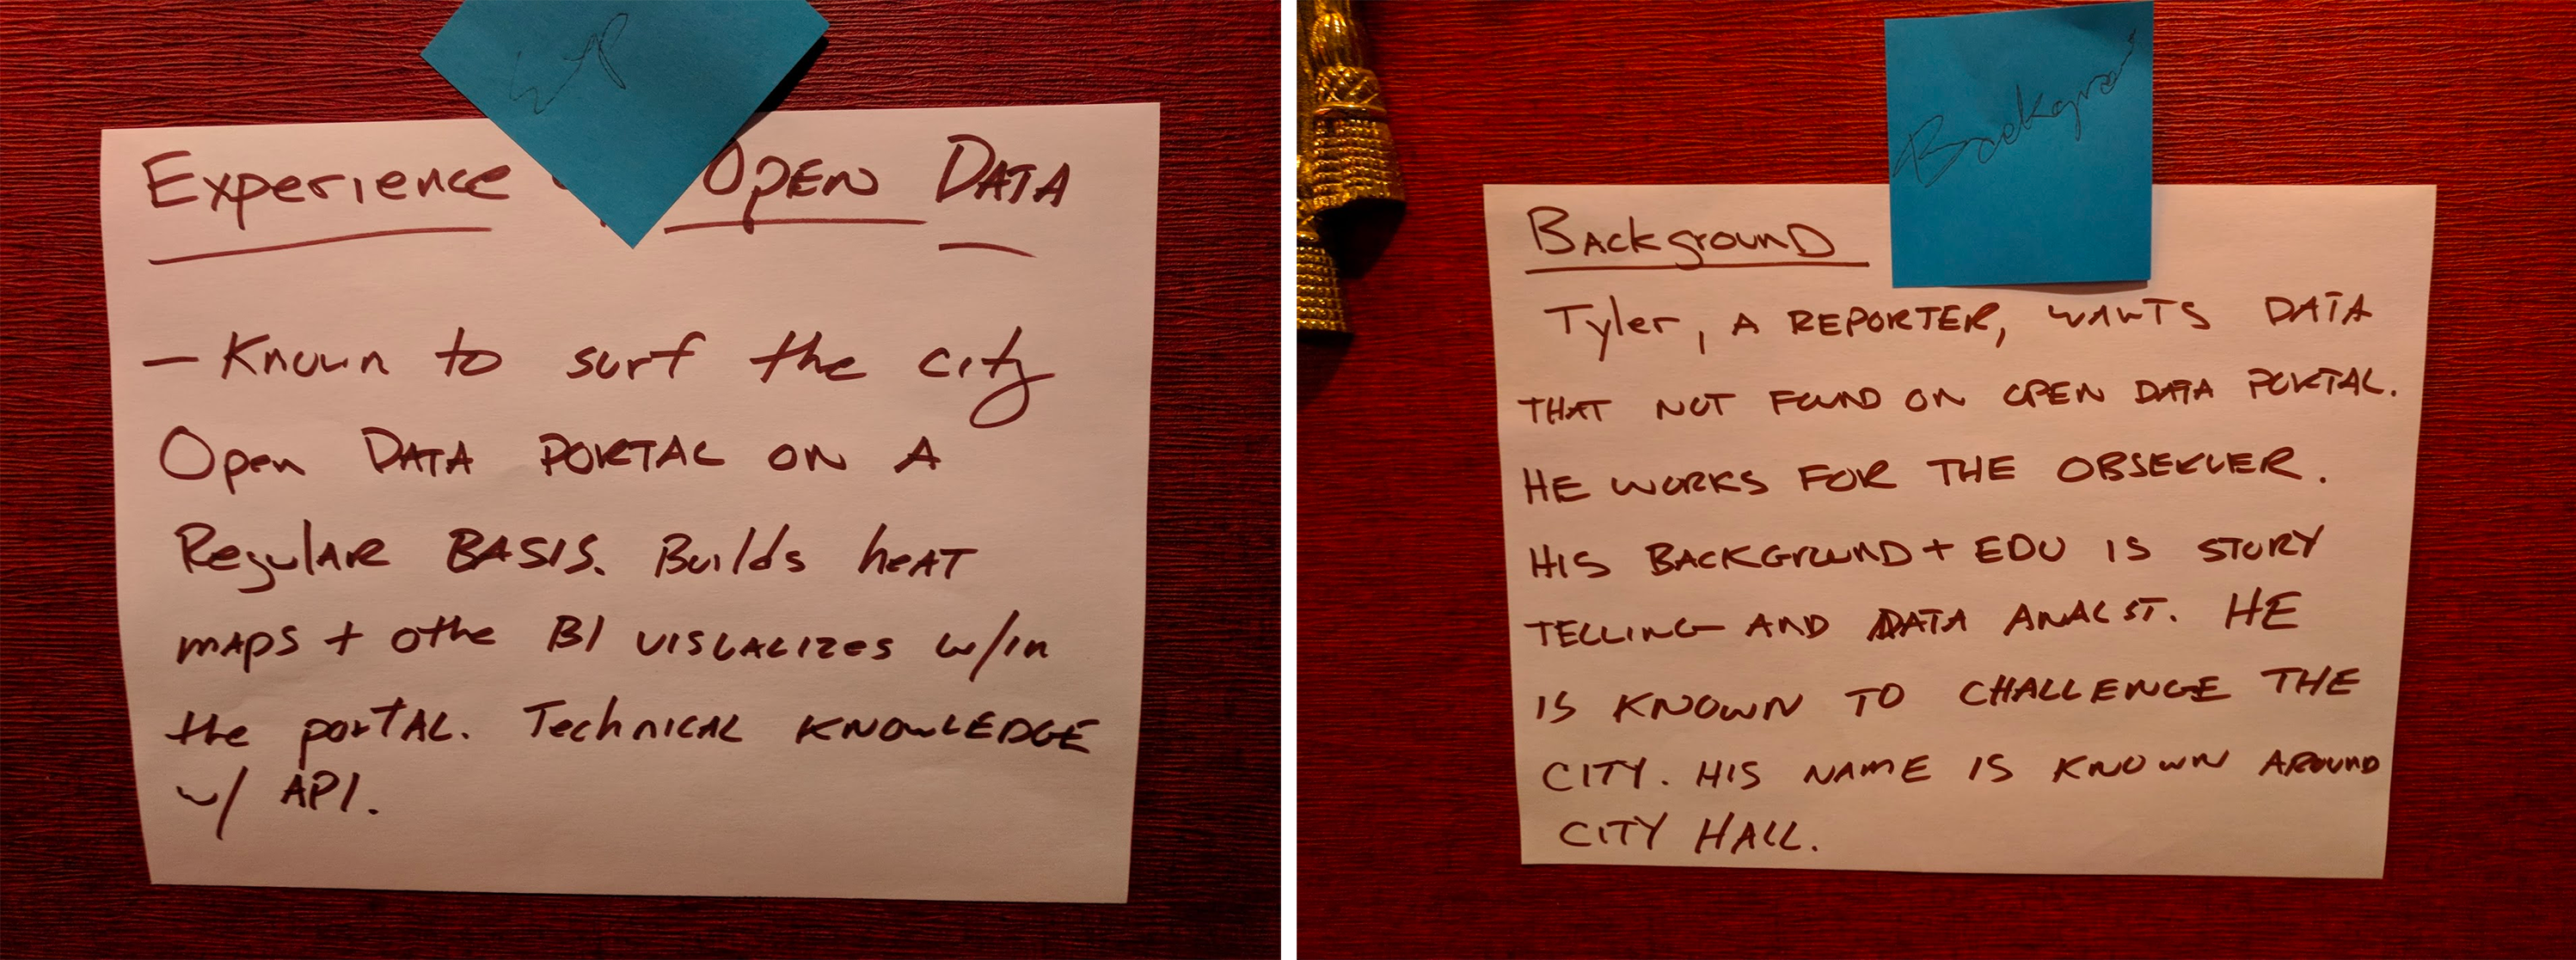 Exp
Experience Open DATA
– Known to surf the city
Open DATA PORTAL ON A
Regular BASIS. Builds heAT
mAPS + othe BI VISUALIZES w/in
the portAL. Technical KNOWLEDGE
w/ API.
Backgrou
BAckgrounD
Tyler, A REPORTER, WANTS DATA
THAT NOT FOUND ON OPEN DATA PORTAL.
HE WORKS FOR THE OBSERVER.
HIS BACKGROUND + EDU IS STORY
TELLING AND DATA ANALST. HE
IS KNOWN TO CHALLENGE THE
CITY. HIS NAME IS KNOWN AROUND
CITY HALL.